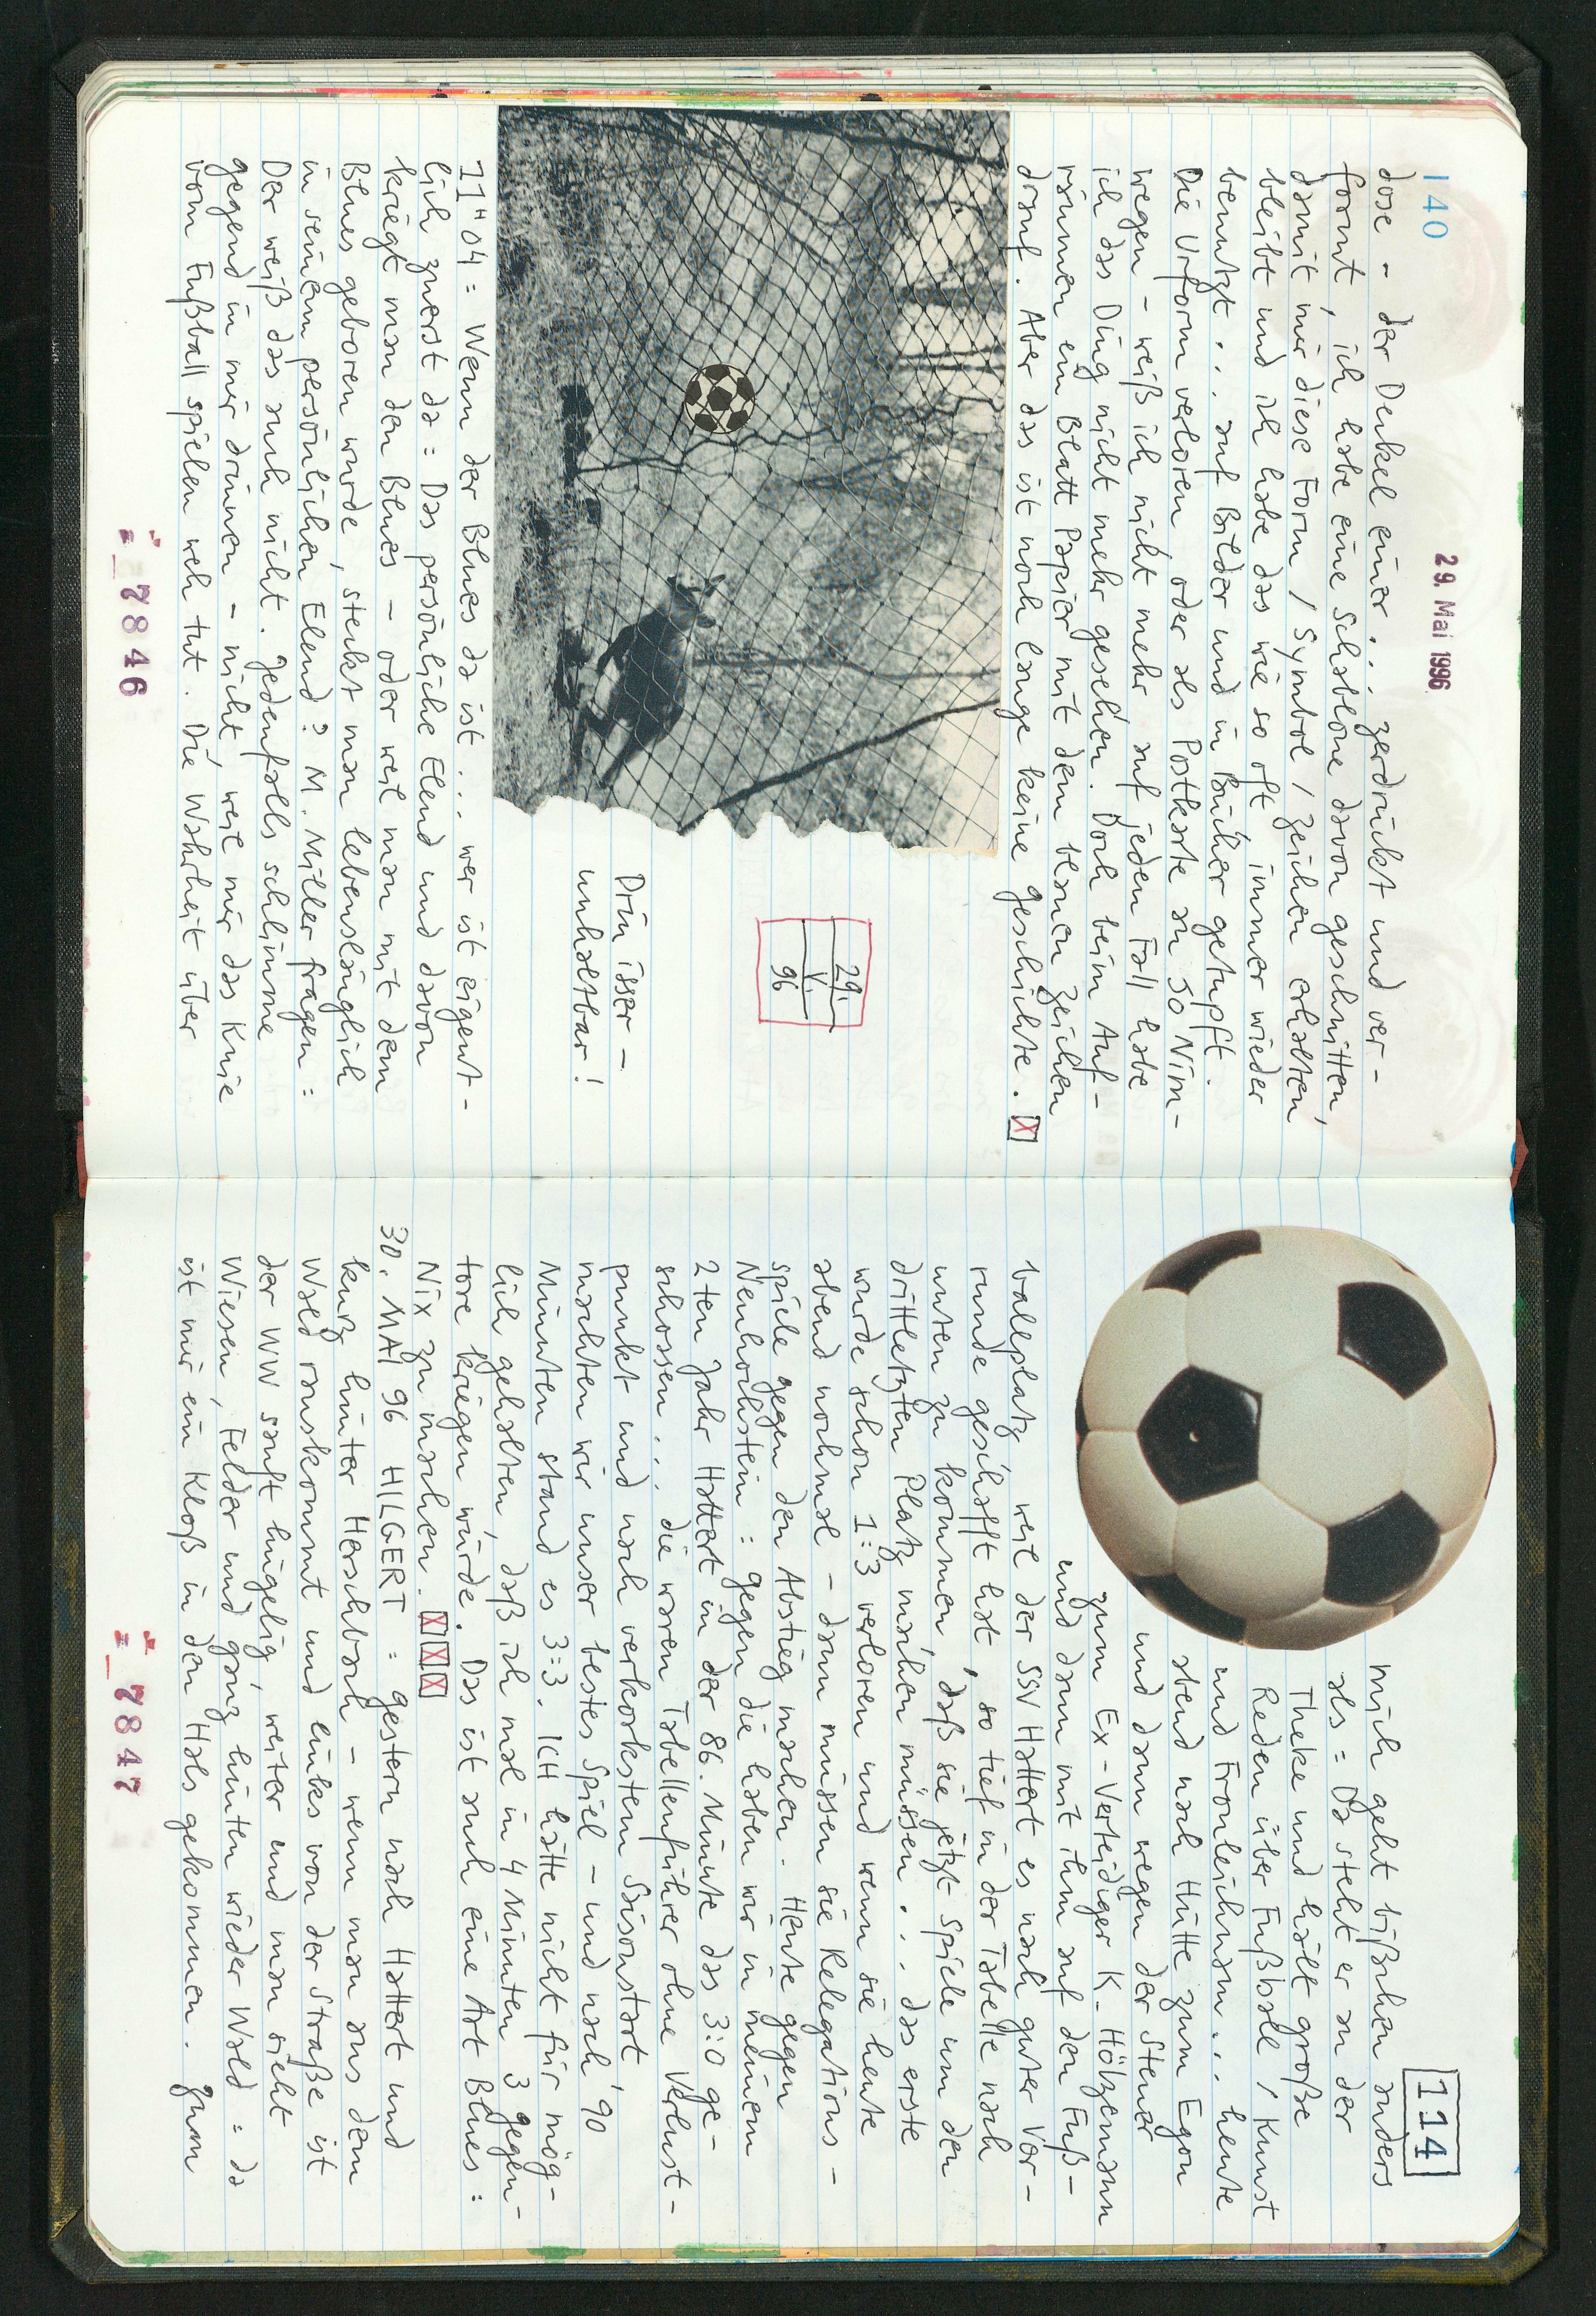 140
29. Mai 1996
dose - der Deckel einer... zerdrückt und ver-
formt, ich habe eine Schablone davon geschnitten,
damit mir diese Form / Symbol / Zeichen erhalten
bleibt und ich habe das wie so oft immer wieder
benutzt... auf Bilder und in Bücher getupft.
Die Urform verloren oder als Postkarte an JO Nim-
wegen - weiß ich nicht mehr auf jeden Fall habe
ich das Ding nicht mehr gesehen. Doch beim Auf-
räumen ein Blatt Papier mit dem blauen Zeichen
drauf. Aber das ist noch lange keine Geschichte. X
29.
V.
96
Drin isser -
unhaltbar!
11"04: Wenn der Blues da ist... wer ist eigent-
lich zuerst da: Das persönliche Elend und davon
kriegt man den Blues - oder weil man mit dem
Blues geboren wurde, steckt man lebenslänglich
in seinem persönlichen Elend? M. Miller fragen:
Der weiß das auch nicht. Jedenfalls schlimme
gegend in mir drinnen - nicht, weil mir das Knie
vom Fußball spielen weh tut. Die Wahrheit über
7846
114
mich geht bißchen anders
als: Da steht er an der
Theke und hält große
Reden über Fußball / Kunst
und Fronleichnam... heute
abend nach Hütte zum Egon
und dann wegen der Steuer
zum Ex-Verteidiger K. Hölzemann
und dann mit ihm auf den Fuß-
balleplatz, weil der SSV Hattert es nach guter Vor-
runde geschafft hat, so tief in der Tabelle nach
unten zu kommen, daß sie jetzt Spiele um den
drittletzten Platz machen müssen... das erste
wurde schon 1:3 verloren und wenn sie heute
abend nochmal - dann müssen sie Relegations-
spiele gegen den Abstieg machen. Heute gegen
Neuhochstein: gegen die haben wir in meinem
2ten Jahr Hattert in der 86. Minute das 3:0 ge-
schossen... die waren Tabellenführer ohne Verlust-
punkt und nach verkorkstem Saisonstart,
machten wir unser bestes Spiel - und nach 90
Minuten stand es 3:3. ICH hätte nicht für mög-
lich gehalten, daß ich mal in 4 Minuten 3 gegen-
tore kriegen würde. Das ist auch eine Art Blues:
Nix zu machen. X X X
30. MAI 96 HILGERT: gestern nach Hattert und
kurz hinter Herschbach - wenn man aus dem
Wald rauskommt und links von der Straße ist
der WW sanft hügelig, weiter und man sieht
Wiesen, Felder und ganz hinten wieder Wald: da
ist mir ein Kloß in den Hals gekommen. Zum
7847